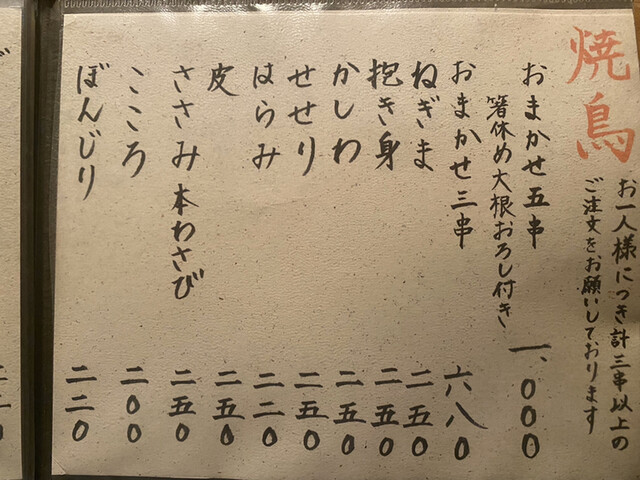 焼鳥
お一人様につき計三串以上の
ご注文をお願いしております
おまかせ五串 一、〇〇〇
箸休め大根おろし付き
おまかせ三串 六八〇
ねぎま 二五〇
抱き身 二五〇
かしわ 二五〇
せせり 二五〇
はらみ 二二〇
皮 二五〇
ささみ本わさび 二五〇
こころ 二〇〇
ぼんじり 二二〇